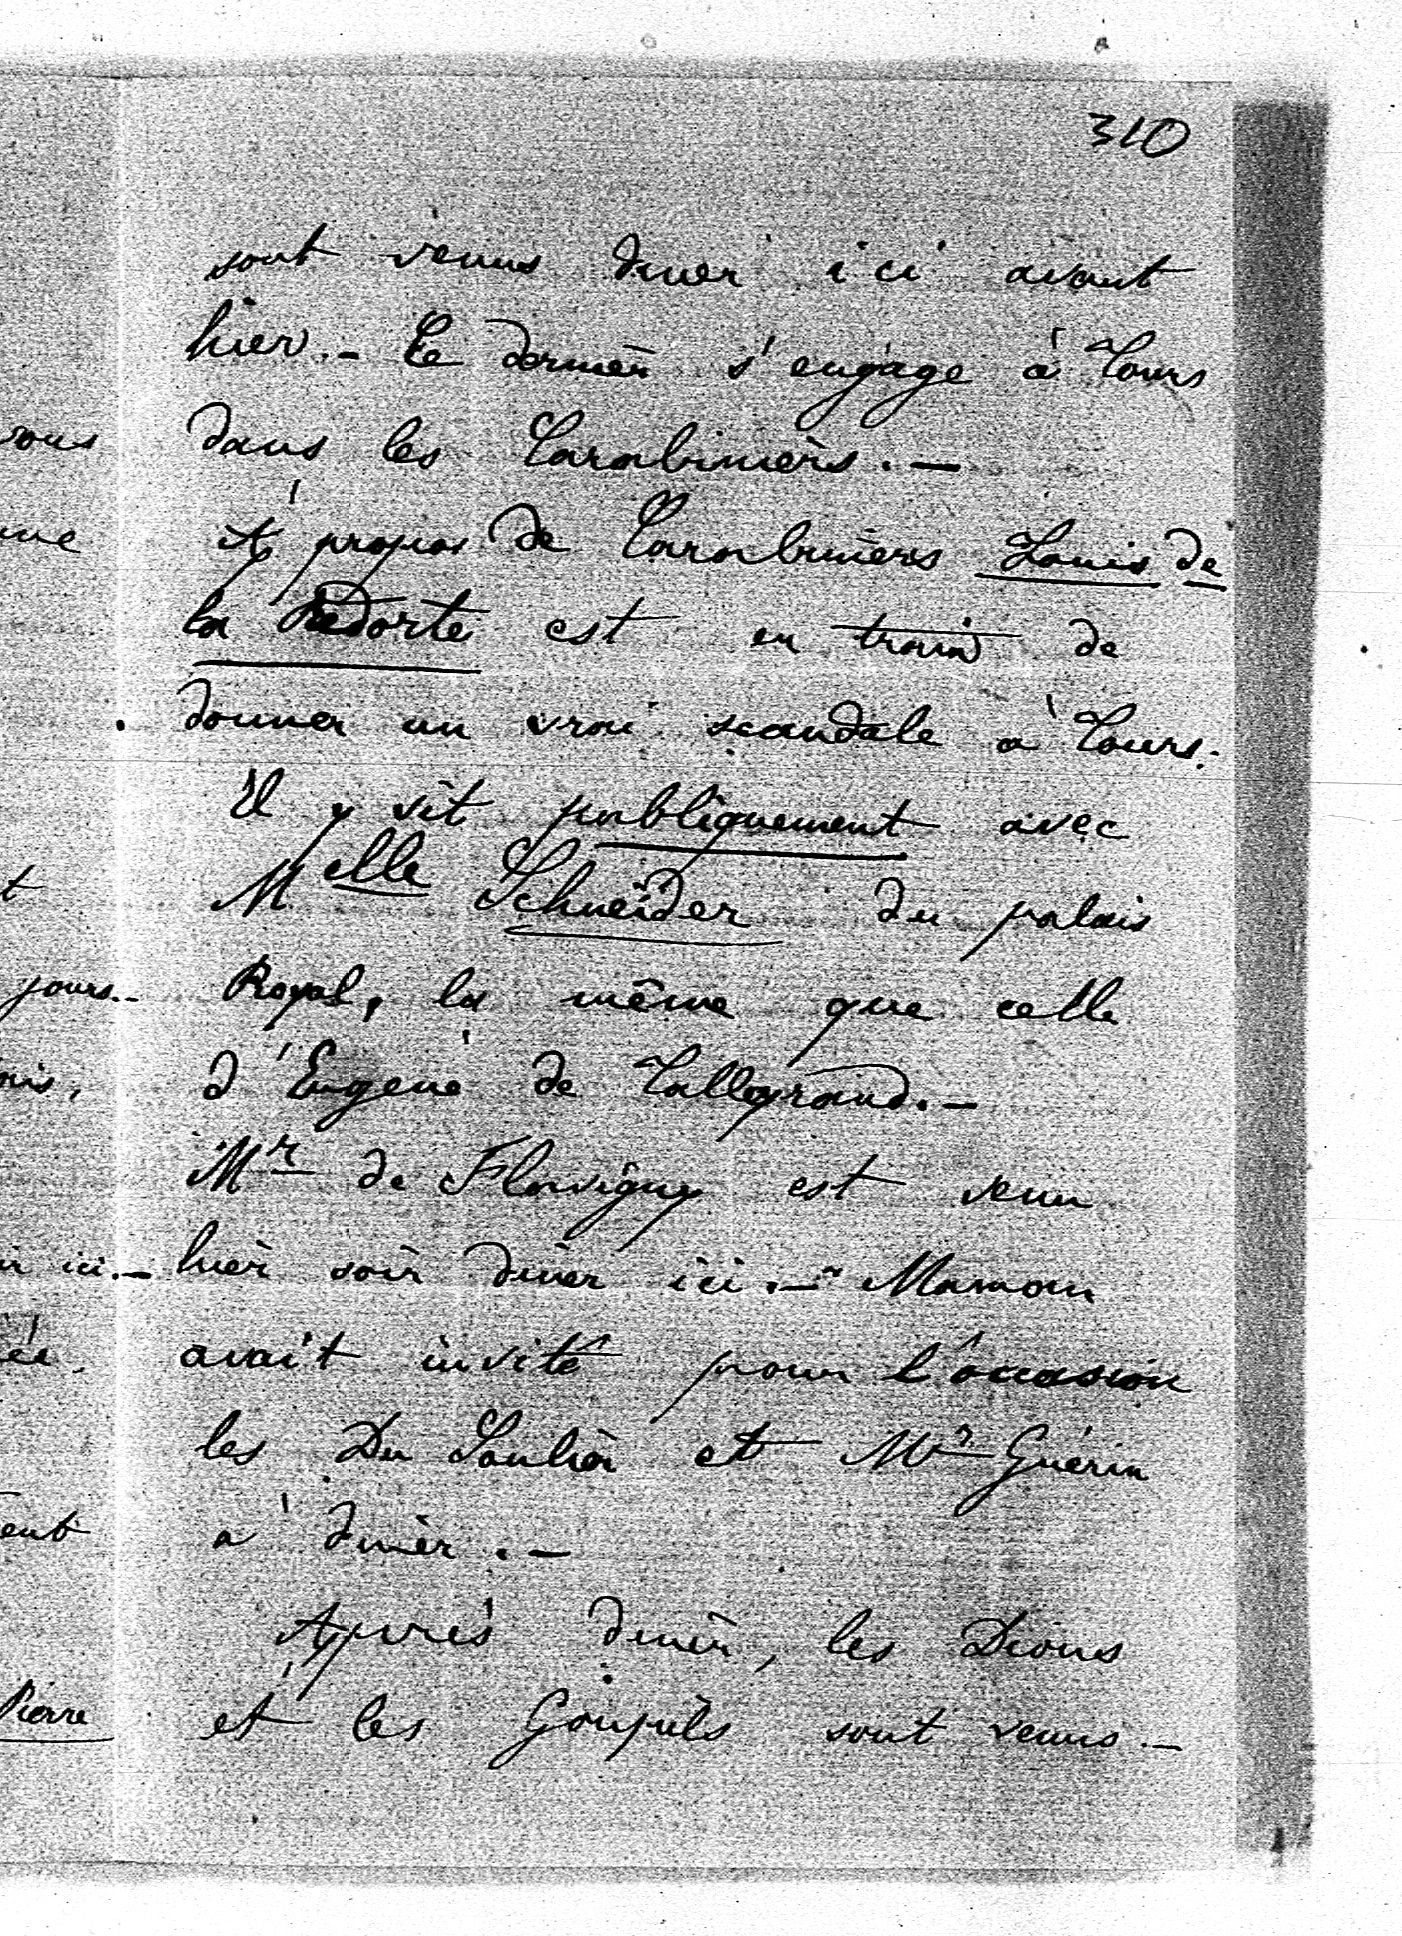 310
sont venus diner ici avant
hier. - Ce dernier s'engage à Tours
dans les Carabiniers. -
A propos de Carabiniers Louis de
la Redorte est en train de
donner un vrai scandale à Tours.
Il y vit publiquement avec
Melle Schneider du palais
Royal, la même que celle
d'Eugene de Talleyrand. -
Mr de Flavigny est venu
hier soir diner ici. - Maman
avait invité pour l'occasion
les Du Saulier et Mr Guérin
à diner. -
Après diner, les Dions
et les Goupils sont venus. -
vous
jours. -
ici. -
Pierre